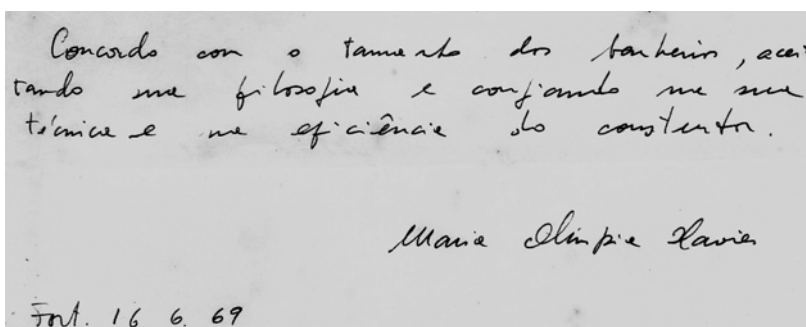 Concordo com o tamanho dos banheiros, acei
tando sua filosofia e confiando na sua
técnica e na eficiência do construtor.
Maria Olimpia Xavier
Fort. 16 6. 69